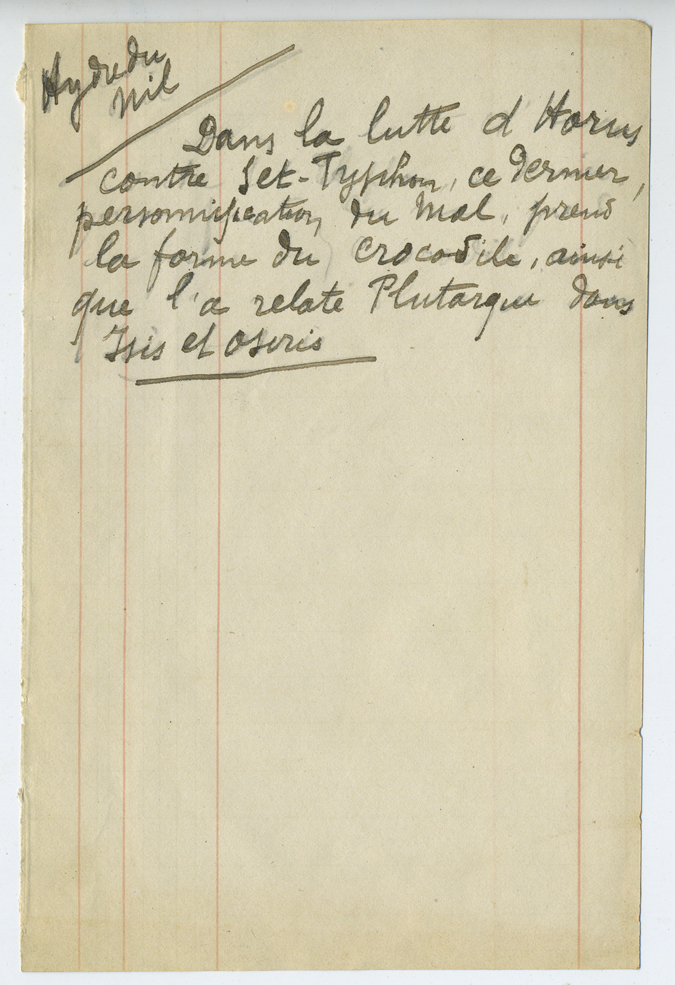 Hydre du
Nil
Dans la lutte d'Horus
contre Set-Typhon, ce dernier,
personnification du Mal, prend
la forme du crocodile, ainsi
que l'a relate Plutarque dans
Isis et Osiris